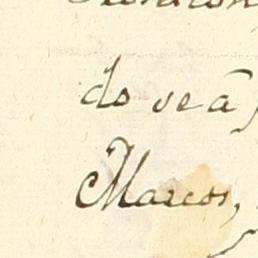 do se á
Marcos,